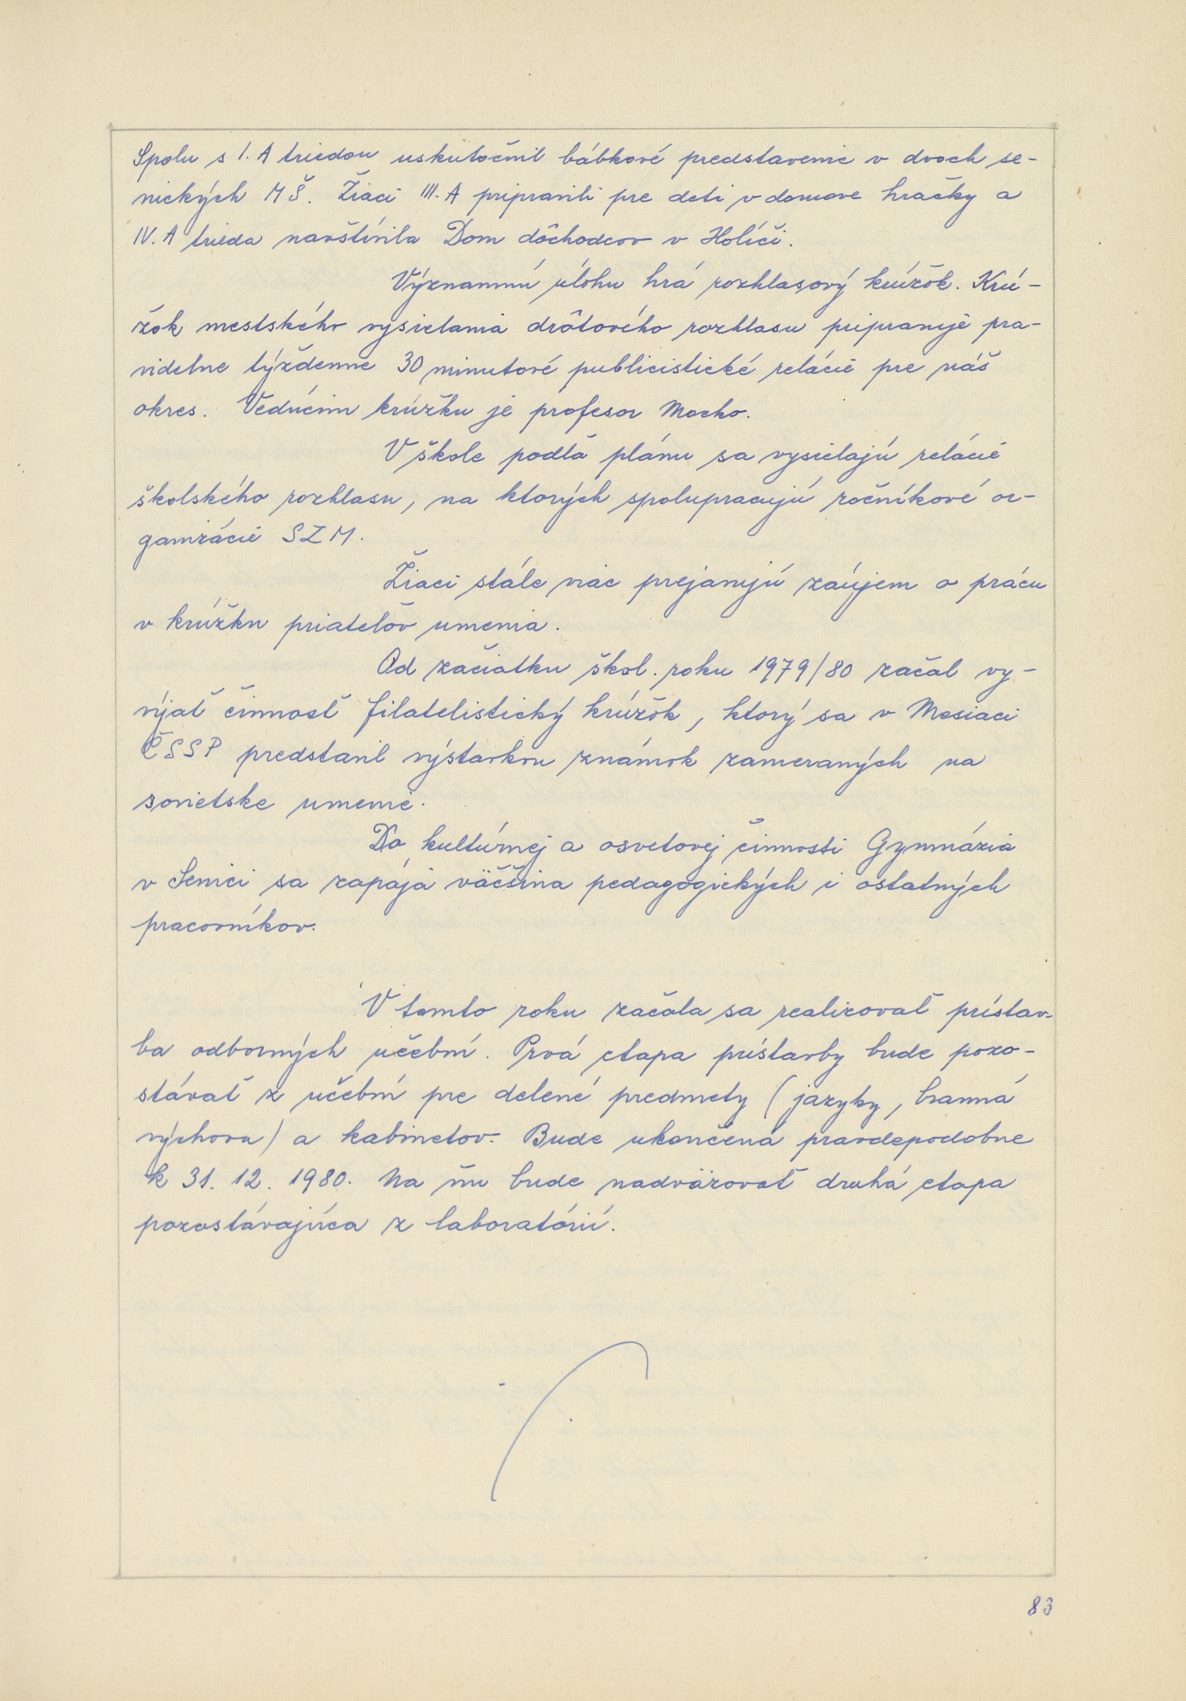 Spolu s I. A triedou uskutočnil bábkové predstavenie v dvoch se-
nických MŠ. Žiaci III. A pripravili pre deti v domove hračky a
IV. A trieda navštívila Dom dôchodcov v Holíči.
Významnú úlohu hrá rozhlasový krúžok. Krú-
žok mestského vysielania drôtového rozhlasu pripravuje pra-
videlne týždenne 30 minutové publicistické relácie pre náš
okres. Vedúcim krúžku je profesor Mocko.
V škole podľa plánu sa vysielajú relácie
školského rozhlasu, na ktorých spolupracujú ročníkové or-
ganizácie SZM.
Žiaci stále viac prejavujú záujem o prácu
v krúžku priateľov umenia.
Od začiatku škol. roku 1979/80 začal vy-
víjať činnosť filatelistický krúžok, ktorý sa v Mesiaci
ČSSP predstavil výstavkou známok zameraných na
sovietske umenie.
Do kultúrnej a osvetovej činnosti Gymnázia
v Senici sa zapája väčšina pedagogických i ostatných
pracovníkov.
V tomto roku začala sa realizovať prístav-
ba odborných učební. Prvá etapa prístavby bude pozo-
stávať z učební pre delené predmety (jazyky, branná
výchova) a kabinetov. Bude ukončená pravdepodobne
k 31. 12. 1980. Na ňu bude nadväzovať druhá etapa
pozostávajúca z laboratórií.
83